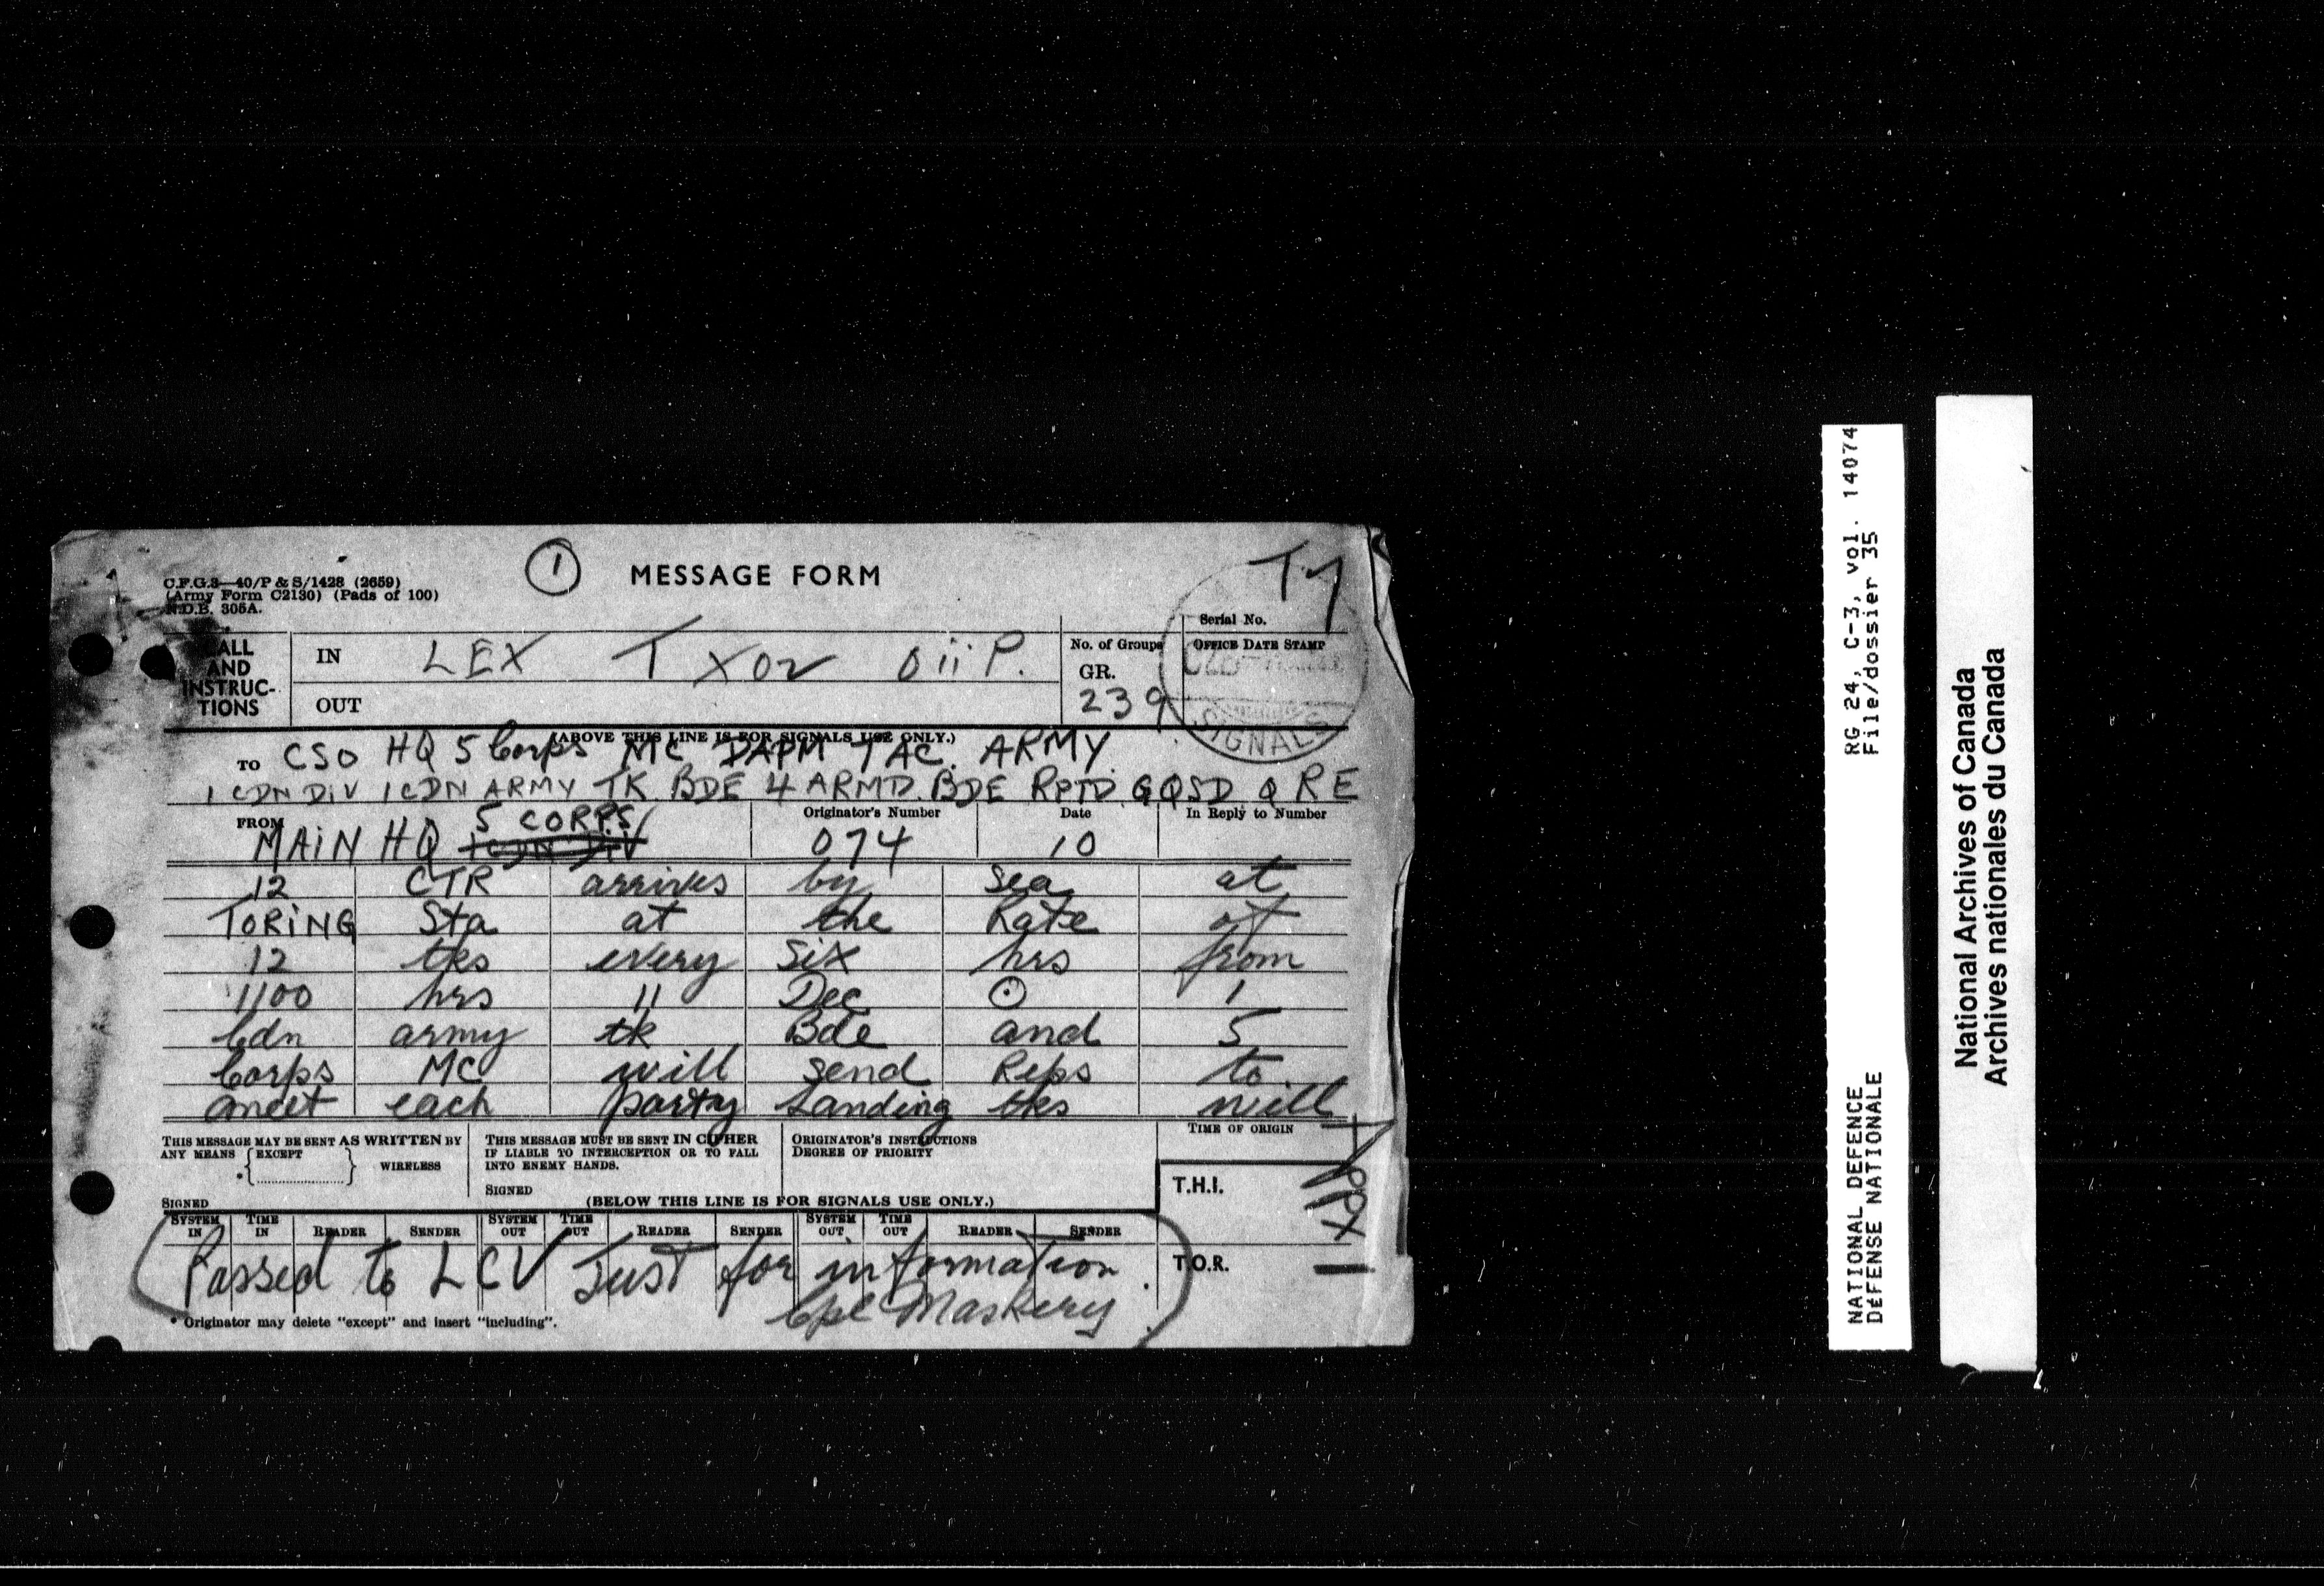 ① MESSAGE FORM
C.F.G.3—40/P & S/1428 (2659)
(Army Form C2130) (Pads of 100)
N.D.B. 305A.
Serial No.
CALL AND INSTRUC-TIONS
IN LEX T XOR OiiP.
OUT
No. of Groups
GR.
239
OFFICE DATE STAMP
SIGNALS
(ABOVE THIS LINE IS FOR SIGNALS USE ONLY.)
TO CSO HQ 5 Corps MC DAPM TAC. ARMY
1 CDN DiV 1 CDN ARMY TK BDE 4 ARMD. BDE RPTD. GQSD Q RE
FROM MAIN HQ 5 CORPS
Originator's Number 074
Date 10
In Reply to Number
12 CTR arrives by sea at
TORING Sta at the Rate of
12 tks every six hrs from
1100 hrs 11 Dec ⊙ 1
Cdn army tk Bde and 5
Corps MC will send Reps to
meet each party Landing tks will
THIS MESSAGE MAY BE SENT AS WRITTEN BY
ANY MEANS { EXCEPT } WIRELESS
SIGNED
THIS MESSAGE MUST BE SENT IN CIPHER
IF LIABLE TO INTERCEPTION OR TO FALL
INTO ENEMY HANDS.
SIGNED
ORIGINATOR'S INSTRUCTIONS
DEGREE OF PRIORITY
TIME OF ORIGIN
T.H.I.
T.O.R.
(BELOW THIS LINE IS FOR SIGNALS USE ONLY.)
SYSTEM IN TIME IN READER SENDER SYSTEM OUT TIME OUT READER SENDER SYSTEM OUT TIME OUT READER SENDER
Passed to LCV Just for information.
Cpl Maskery
* Originator may delete "except" and insert "including".
Appx 1
RG 24, C-3, vol. 14074
File/dossier 35
NATIONAL DEFENCE
DÉFENSE NATIONALE
National Archives of Canada
Archives nationales du Canada